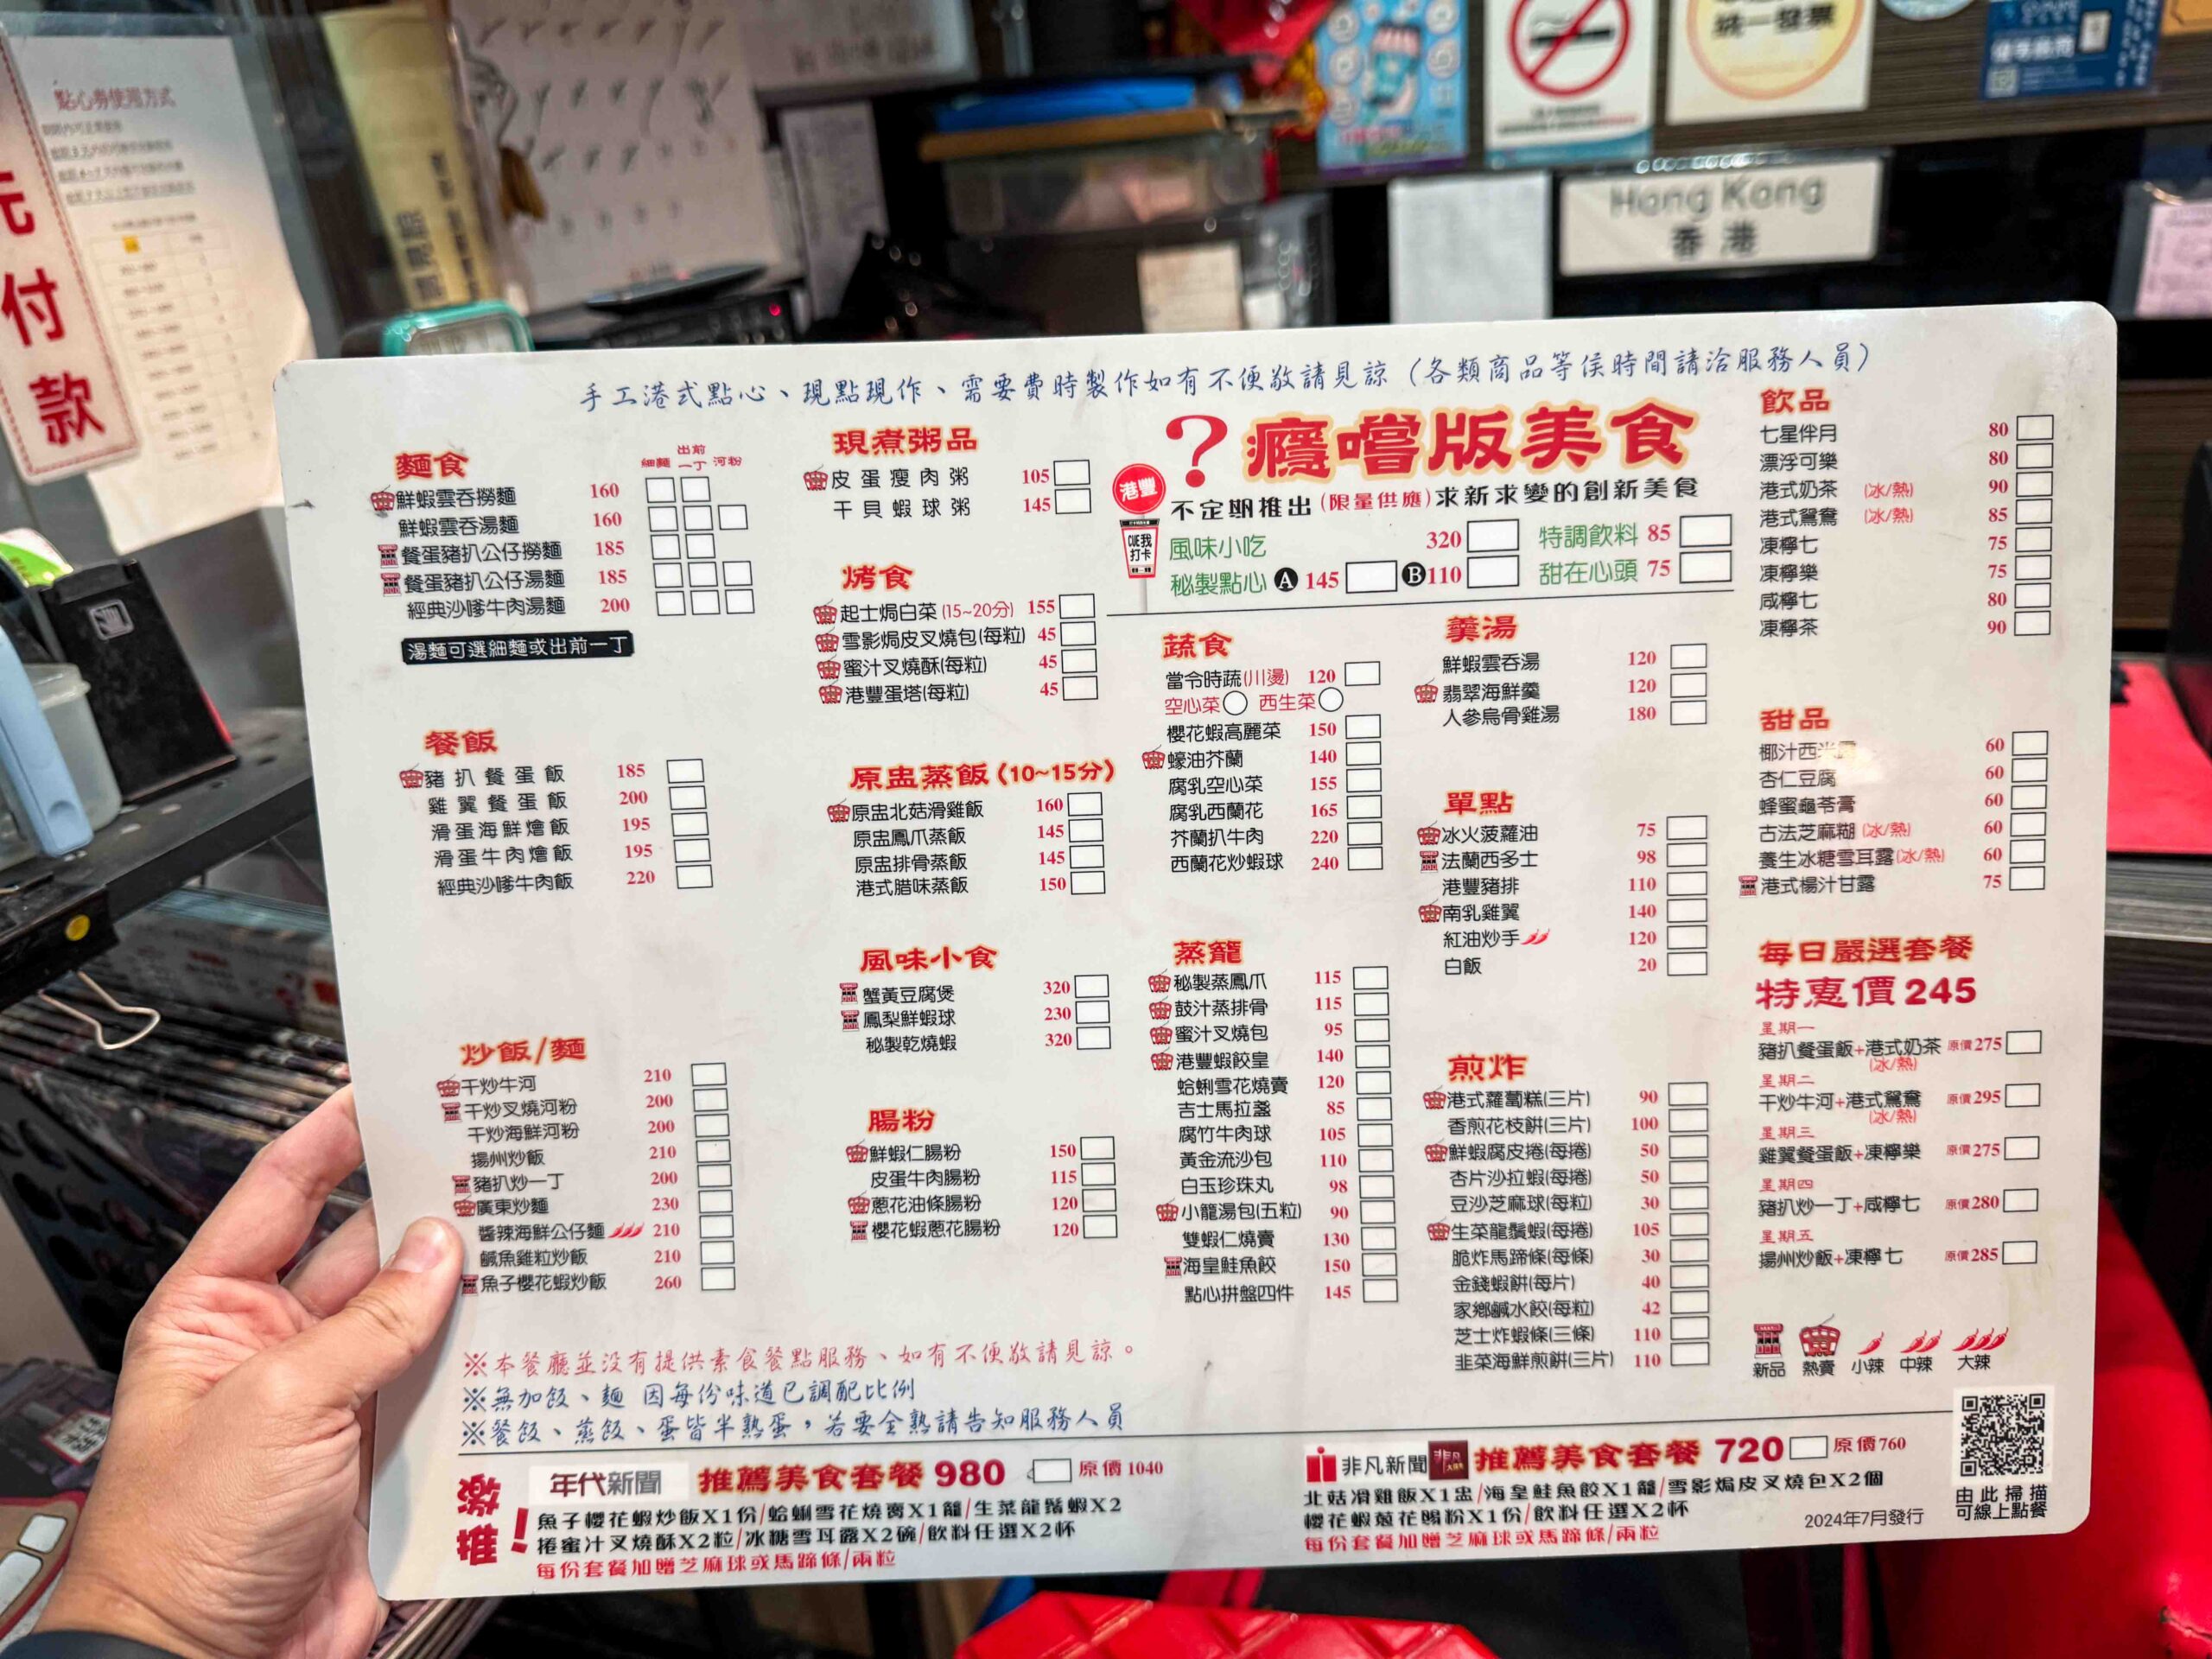 點心券使用方式
元
付
款
統一發票
Hong Kong
香港
手工港式點心、現點現作、需要費時製作如有不便敬請見諒（各類商品等侯時間請洽服務人員）
麵食
細麵 出前一丁 河粉
鮮蝦雲吞撈麵 160
鮮蝦雲吞湯麵 160
餐蛋豬扒公仔撈麵 185
餐蛋豬扒公仔湯麵 185
經典沙嗲牛肉湯麵 200
湯麵可選細麵或出前一丁
餐飯
豬扒餐蛋飯 185
雞翼餐蛋飯 200
滑蛋海鮮燴飯 195
滑蛋牛肉燴飯 195
經典沙嗲牛肉飯 220
炒飯/麵
干炒牛河 210
干炒叉燒河粉 200
干炒海鮮河粉 200
揚州炒飯 210
豬扒炒一丁 200
廣東炒麵 230
醬辣海鮮公仔麵 210
鹹魚雞粒炒飯 210
魚子櫻花蝦炒飯 260
現煮粥品
皮蛋瘦肉粥 105
干貝蝦球粥 145
烤食
起士焗白菜(15~20分) 155
雪影焗皮叉燒包(每粒) 45
蜜汁叉燒酥(每粒) 45
港豐蛋塔(每粒) 45
原盅蒸飯(10~15分)
原盅北菇滑雞飯 160
原盅鳳爪蒸飯 145
原盅排骨蒸飯 145
港式腊味蒸飯 150
風味小食
蟹黃豆腐煲 320
鳳梨鮮蝦球 230
秘製乾燒蝦 320
腸粉
鮮蝦仁腸粉 150
皮蛋牛肉腸粉 115
蔥花油條腸粉 120
櫻花蝦蔥花腸粉 120
?癮嚐版美食
港豐
不定期推出(限量供應)求新求變的創新美食
CUE我
打卡
風味小吃 320 特調飲料 85
秘製點心 A 145 B 110 甜在心頭 75
蔬食
當令時蔬(川燙) 120
空心菜 西生菜
櫻花蝦高麗菜 150
蠔油芥蘭 140
腐乳空心菜 155
腐乳西蘭花 165
芥蘭扒牛肉 220
西蘭花炒蝦球 240
蒸籠
秘製蒸鳳爪 115
鼓汁蒸排骨 115
蜜汁叉燒包 95
港豐蝦餃皇 140
蛤蜊雪花燒賣 120
吉士馬拉盞 85
腐竹牛肉球 105
黃金流沙包 110
白玉珍珠丸 98
小籠湯包(五粒) 90
雙蝦仁燒賣 130
海皇鮭魚餃 150
點心拼盤四件 145
羹湯
鮮蝦雲吞湯 120
翡翠海鮮羹 120
人參烏骨雞湯 180
單點
冰火菠蘿油 75
法蘭西多士 98
港豐豬排 110
南乳雞翼 140
紅油炒手 120
白飯 20
煎炸
港式蘿蔔糕(三片) 90
香煎花枝餅(三片) 100
鮮蝦腐皮捲(每捲) 50
杏片沙拉蝦(每捲) 50
豆沙芝麻球(每粒) 30
生菜龍鬚蝦(每捲) 105
脆炸馬蹄條(每條) 30
金錢蝦餅(每片) 40
家鄉鹹水餃(每粒) 42
芝士炸蝦條(三條) 110
韭菜海鮮煎餅(三片) 110
飲品
七星伴月 80
漂浮可樂 80
港式奶茶 (冰/熱) 90
港式鴛鴦 (冰/熱) 85
凍檸七 75
凍檸樂 75
咸檸七 80
凍檸茶 90
甜品
椰汁西米 60
杏仁豆腐 60
蜂蜜龜苓膏 60
古法芝麻糊(冰/熱) 60
養生冰糖雪耳露(冰/熱) 60
港式楊汁甘露 75
每日嚴選套餐
特惠價245
星期一
豬扒餐蛋飯+港式奶茶 原價275
(冰/熱)
星期二
干炒牛河+港式鴛鴦 原價295
(冰/熱)
星期三
雞翼餐蛋飯+凍檸樂 原價275
星期四
豬扒炒一丁+咸檸七 原價280
星期五
揚州炒飯+凍檸七 原價285
新品 熱賣 小辣 中辣 大辣
※本餐廳並沒有提供素食餐點服務、如有不便敬請見諒。
※無加飯、麵 因每份味道已調配比例
※餐飯、蒸飯、蛋皆半熟蛋，若要全熟請告知服務人員
激推！
年代新聞 推薦美食套餐 980 原價1040
魚子櫻花蝦炒飯X1份/蛤蜊雪花燒賣X1籠/生菜龍鬚蝦X2
捲蜜汁叉燒酥X2粒/冰糖雪耳露X2碗/飲料任選X2杯
每份套餐加贈芝麻球或馬蹄條/兩粒
非凡新聞 推薦美食套餐 720 原價760
北菇滑雞飯X1盅/海皇鮭魚餃X1籠/雪影焗皮叉燒包X2個
櫻花蝦蔥花腸粉X1份/飲料任選X2杯
每份套餐加贈芝麻球或馬蹄條/兩粒
2024年7月發行
由此掃描
可線上點餐